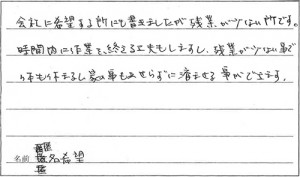 会社に希望する所にも書きましたが残業が少ない所です。
時間内に作業を終える工夫もしますし、残業が少ない事で
体も休まるし家事もあせらずに済ませる事ができます。
名前 匿名希望